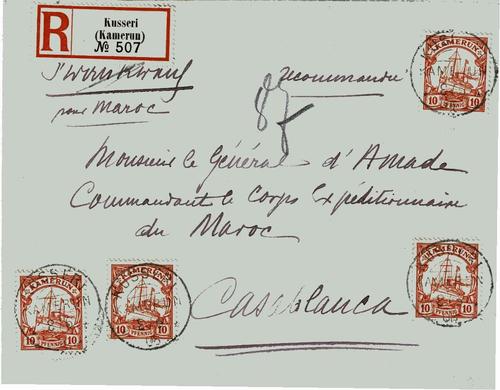 R
Kusseri
(Kamerun)
№ 507
recommandée
pour Maroc
87
Monsieur le Général d'Amade
Commandant le Corps Expéditionnaire
du Maroc
Casablanca
KAMERUN
10 PFENNIG 10
KAMERUN
10 PFENNIG 10
KAMERUN
10 PFENNIG 10
KAMERUN
10 PFENNIG 10